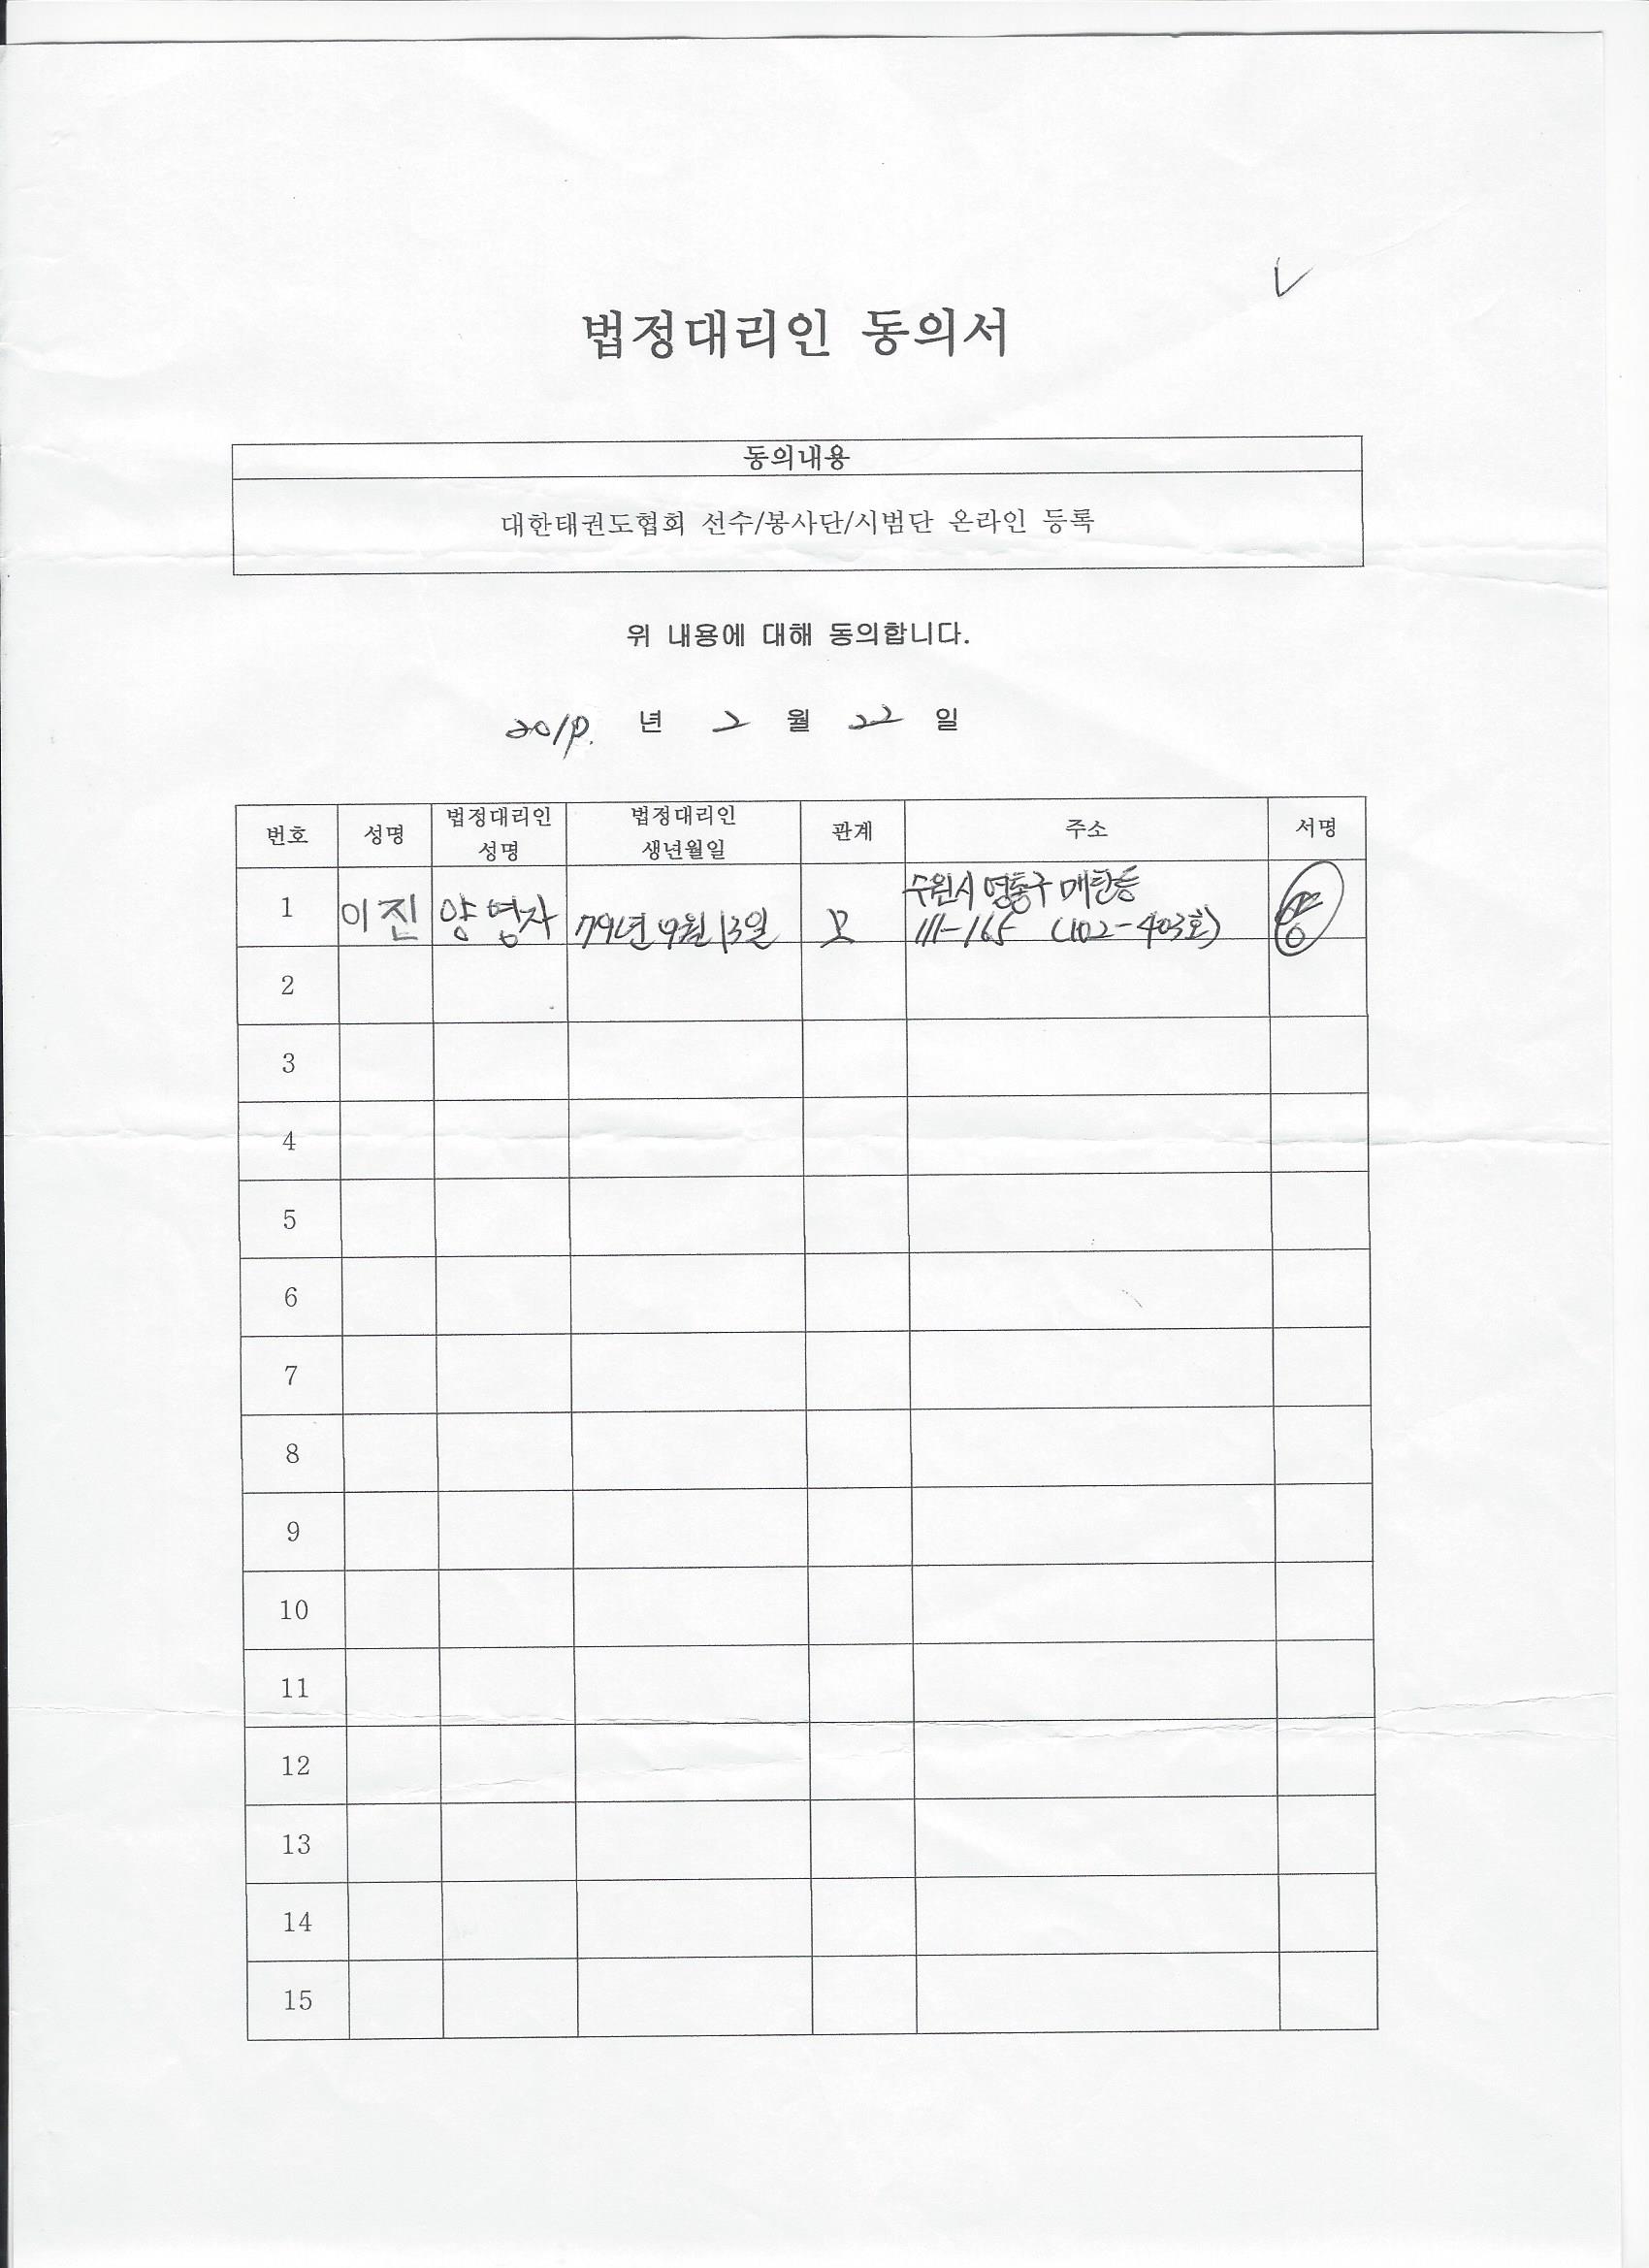 법정대리인 동의서
동의내용
대한태권도협회 선수/봉사단/시범단 온라인 등록
위 내용에 대해 동의합니다.
2019. 년 2 월 22 일
번호 성명 법정대리인 성명 법정대리인 생년월일 관계 주소 서명
1 이진 양영자 79년 9월 13일 모 수원시 영통구 매탄동
111-165 (102-403호)
2
3
4
5
6
7
8
9
10
11
12
13
14
15